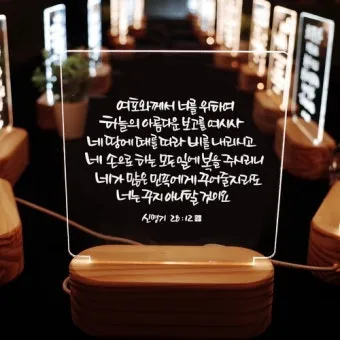 여호와께서 너를 위하여
하늘의 아름다운 보고를 여시사
네 땅에 때를 따라 비를 내리시고
네 손으로 하는 모든 일에 복을 주시리니
네가 많은 민족에게 꾸어줄지라도
너는 꾸지 아니할 것이요
신명기 28:12